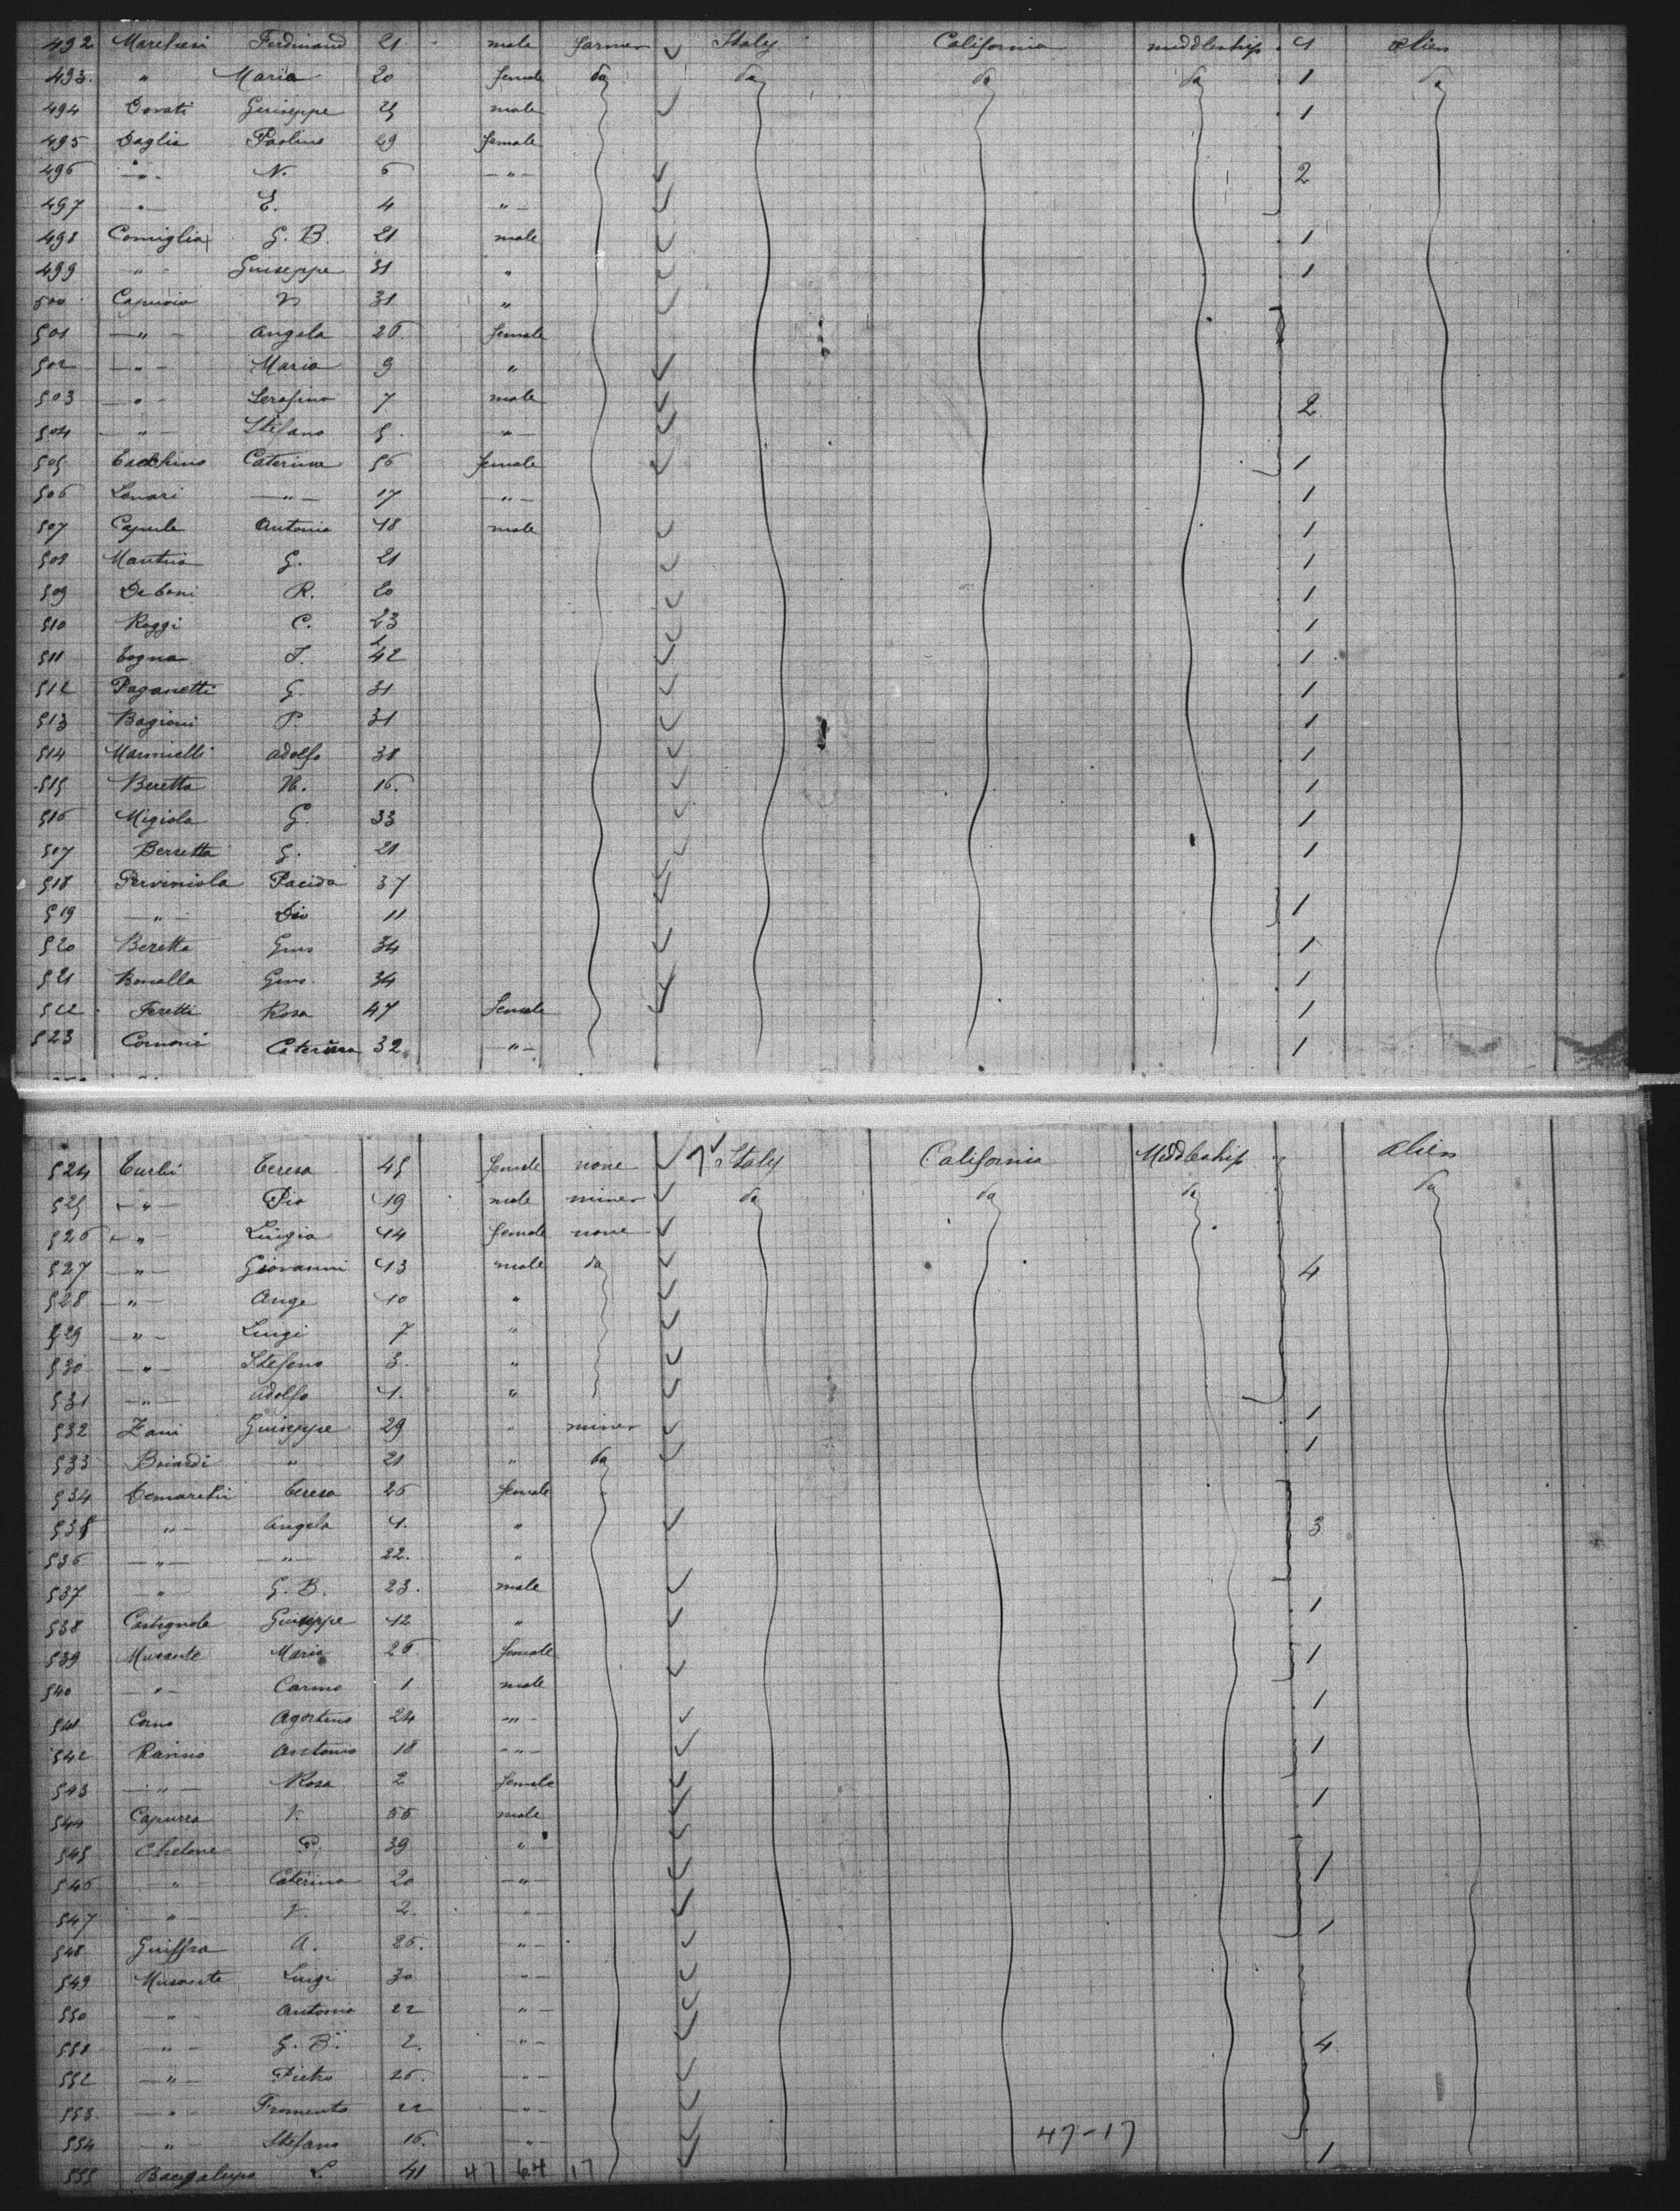 492 Marchesi Ferdinand 21 male farmer Italy California middleship 1 alien
493. " Maria 20 female do do do do 1 do
494 Donati Guiseppe 25 male 1
495 Daglia Paolino 29 female
496 " N. 6 " 2
497 " E. 4 "
498 Comiglia G. B. 21 male 1
499 " Guiseppe 31 " 1
500 31 "
501 " Angela 26 female
502 " Maria 9 "
503 " Serafino 7 male 2
504 " Stefano 5 "
505 Caterina 56 female 1
506 Lenari " 17 " 1
507 Antonio 18 male 1
508 G. 21 1
509 R. 20 1
510 Roggi C. 23 1
511 Cogna 42 1
512 Paganetti G. 31 1
513 Bagioni P. 31 1
514 Adolfo 38 1
515 Beretta 16. 1
516 Migiola G. 33 1
517 Berretta G. 21 1
518 Placida 37
519 " Dio 11 1
520 Beretta Gius 34 1
521 Gius 34 1
522 Feretti Rosa 47 female 1
523 Comoni Caterina 32 " 1
524 Teresa 45 female none Italy California Middleship alien
525 " Pio 19 male miner do do do do
526 " Luigia 14 female none
527 " Giovanni 13 male do 4
528 " Ange 10 "
529 " Luigi 7 "
530 " Stefano 3. "
531 " Adolfo 1. "
532 Zani Guiseppe 29 " miner 1
533 Boiardi " 21 " do 1
534 Demarchi Teresa 26 female
535 " Angela 1. " 3
536 " " 22. "
537 " G. B. 23. male
538 Castagnola Guiseppe 12 " 1
539 Musante Maria 26 female 1
540 " Carmo 1 male
541 Agostino 24 " 1
542 Antonio 18 " 1
543 " Rosa 2 female
544 Capurro V. 56 male 1
545 P. 39 "
546 " Caterina 20 " 1
547 " V. 2. "
548 Guiffra A. 26. " 1
549 Musante Luigi 30 "
550 " Antonio 22 "
551 " G. B. 2. " 4
552 " Pietro 26. "
553. " Fromento 22 "
554 " Stefano 16. " 47-17
555 Bacigalupo L. 41 47 64 17 1